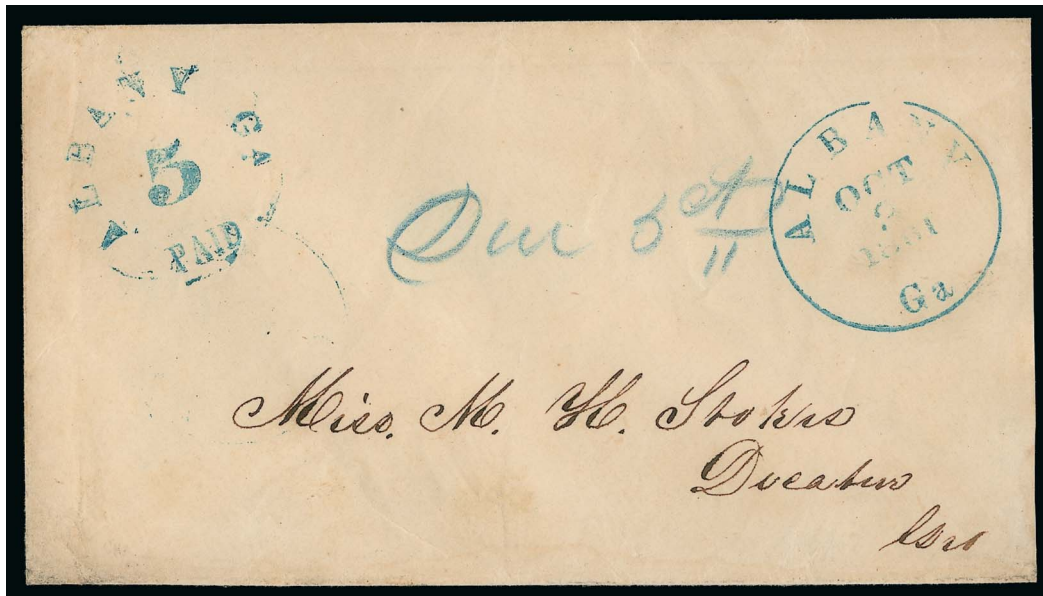 ALBANY GA
5
PAID
Due 5
ALBANY
OCT
1861
Ga
Miss. M. H. Stokes
Decatur